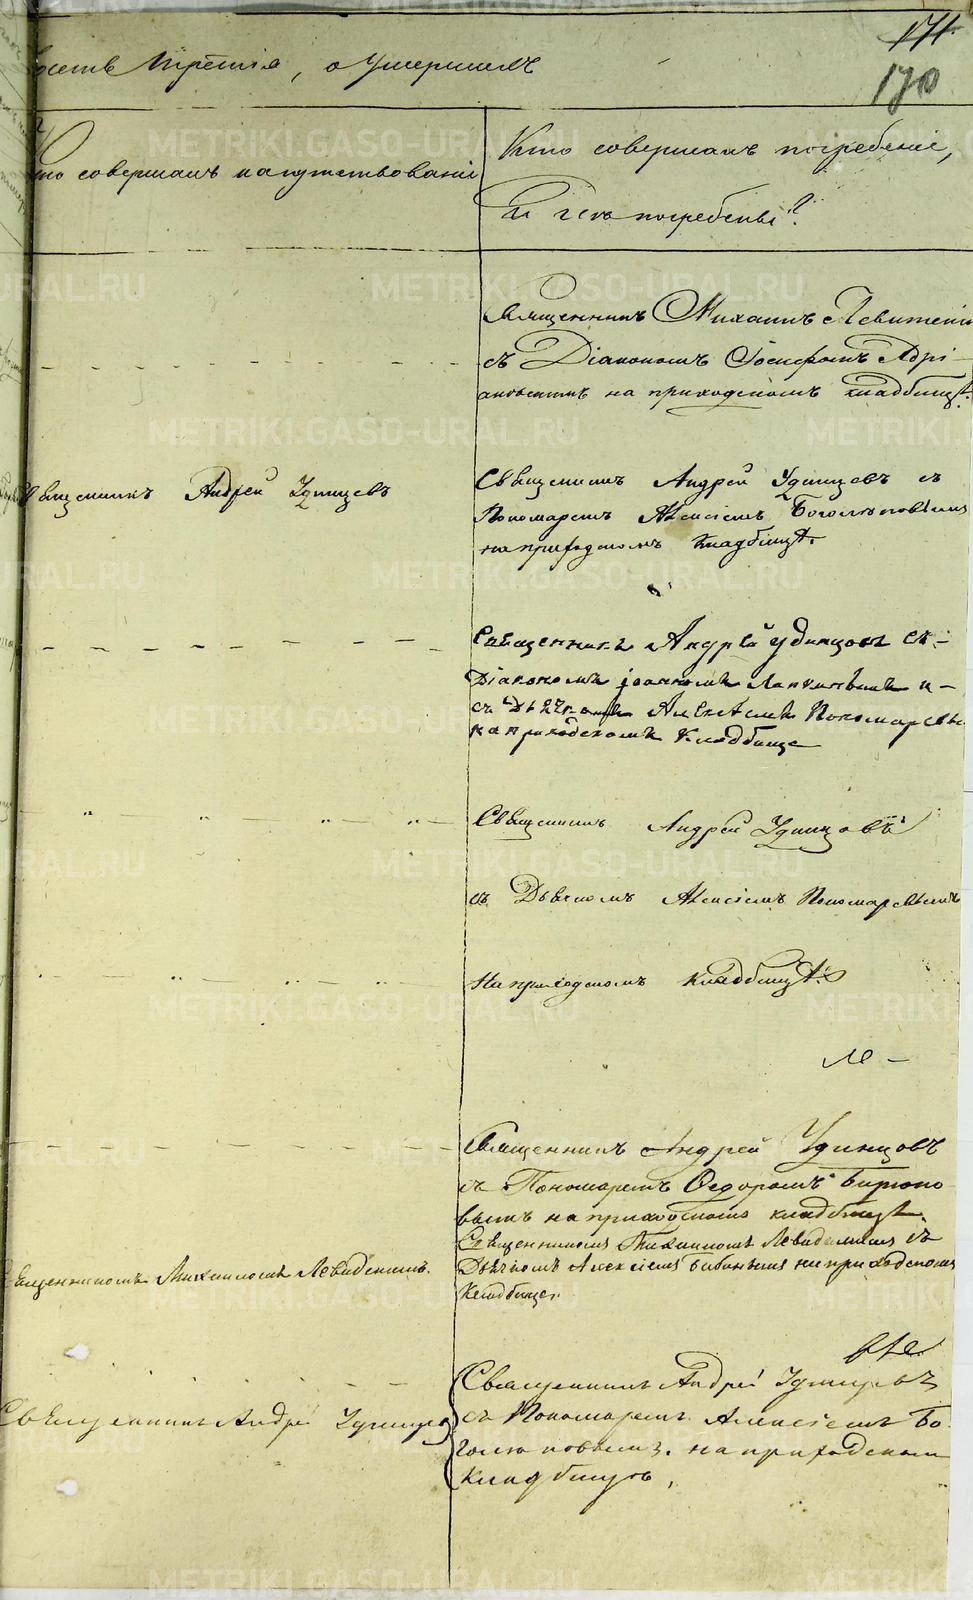 171
170
Часть Третiя, о умершихъ
Кто совершалъ напутствованiе
Кто совершалъ погребенiе,
и где погребены?
Священникъ Михаилъ Левитскiй
съ Дiакономъ Iосифомъ Адрi-
ановымъ на приходскомъ кладбищѣ.
Священникъ Андрей Удинцевъ
Священникъ Андрей Удинцовъ съ
Пономаремъ Алексiемъ Боголюбовымъ
на приходскомъ кладбищѣ.
Священникъ Андрей Удинцовъ съ
Дiакономъ Iоанномъ и
съ Дьячкомъ Алексѣемъ Пономаревы
на приходскомъ кладбище
Священникъ Андрей Удинцовъ
съ Дьячкомъ Алексiемъ Пономаревымъ
На приходскомъ кладбищѣ
Священникъ Андрей Удинцовъ
съ Пономаремъ Ѳедоромъ Бирюко-
вымъ на приходскомъ кладбищѣ.
Священникомъ Михаиломъ Левидскимъ.
Священникомъ Михаиломъ Левидскимъ съ
Дьячкомъ Алексiемъ на приходском
кладбище.
Священникъ Андрей Удинцовъ
Священникъ Андрей Удинцовъ
съ Пономаремъ Алексiемъ Бо-
голюбовымъ на приходском
кладбищѣ.
METRIKI.GASO-URAL.RU